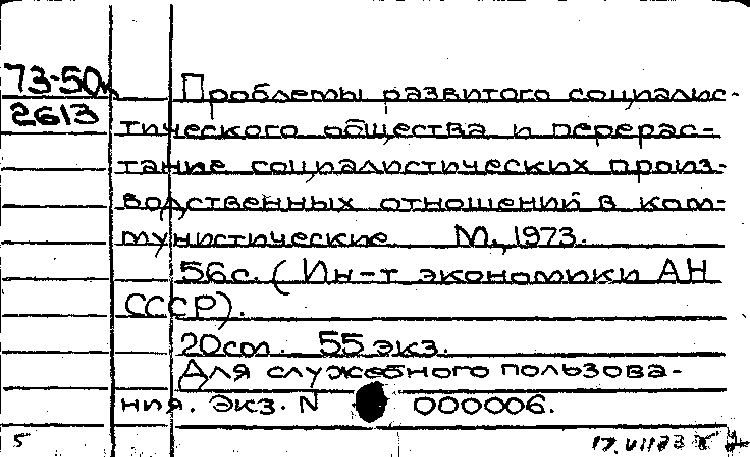 73-50к
2613
Проблемы развитого социалис-
тического общества и перерас-
тание социалистических произ-
водственных отношений в ком-
мунистические М., 1973.
56с. (Ин-т экономики АН
СССР).
20см. 55 экз.
Для служебного пользова-
ния. Экз. N 000006.
5